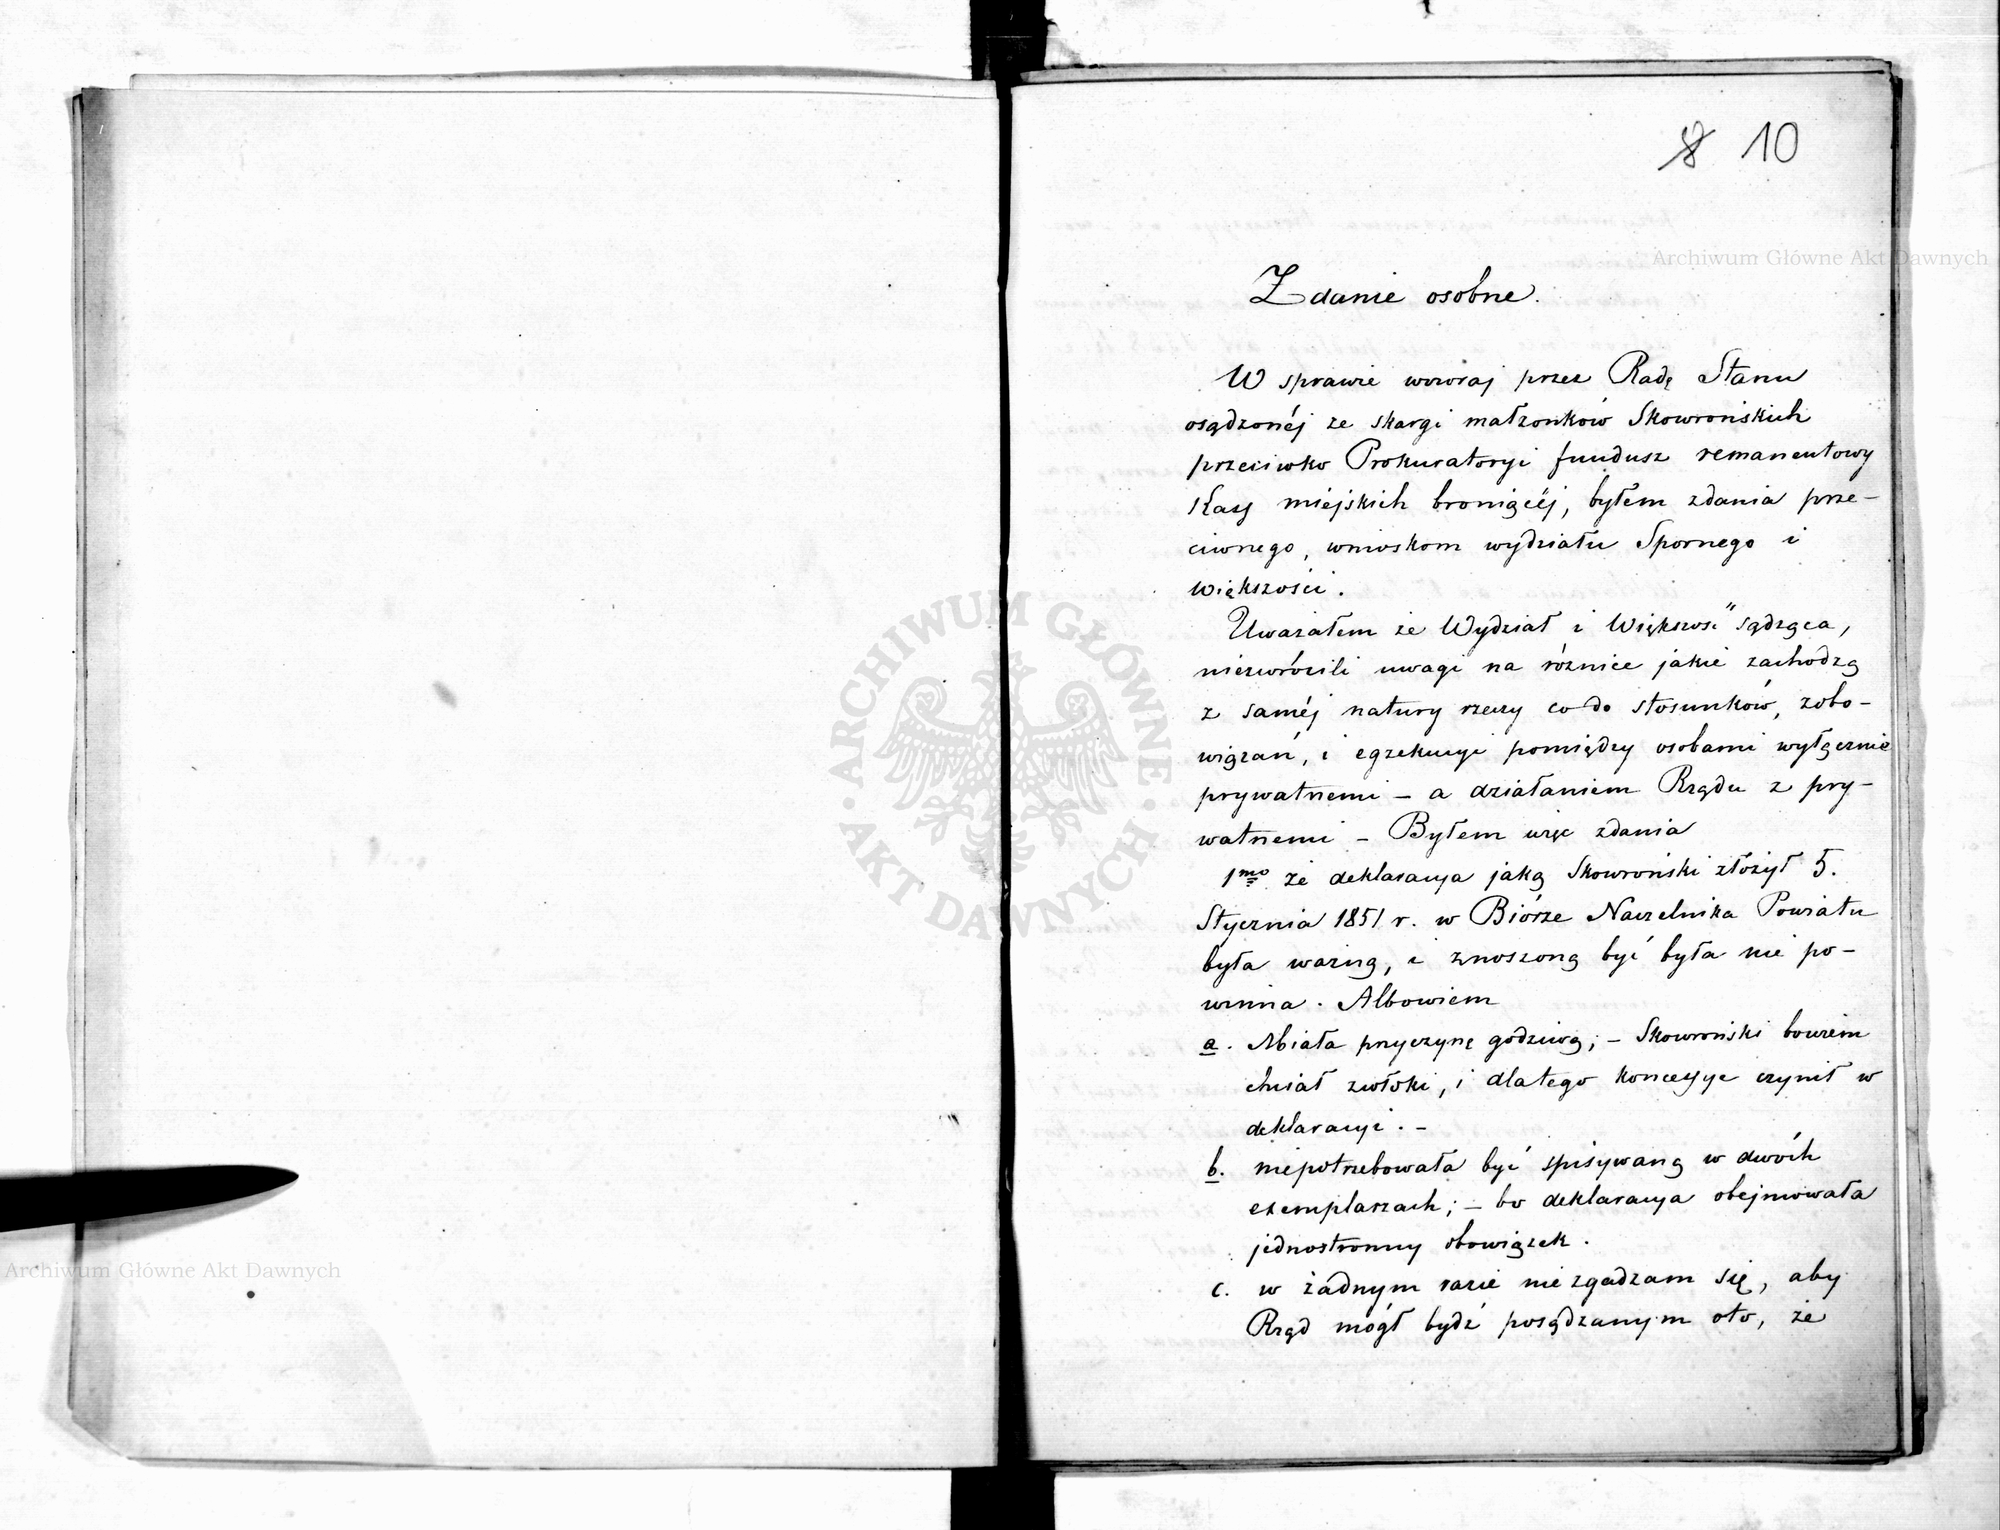 8 10
Zdanie osobne.
W sprawie wczoraj przez Radę Stanu
osądzonéj ze skargi małżonków Skowrońskich
przeciwko Prokuratoryi fundusz remanentowy
Kass miejskich broniącéj, byłem zdania prze-
ciwnego, wnioskom wydziału Spornego i
większości.
Uważałem że Wydział i Większość sądząca,
niezwrócili uwagi na różnice jakie zachodzą
z saméj natury rzeczy co do stosunków, zobo-
wiązań, i egzekucyi pomiędzy osobami wyłącznie
prywatnemi – a działaniem Rządu z pry-
watnemi – Byłem więc zdania
1mo że deklaracya jaką Skowroński złożył 5.
Stycznia 1851 r. w Biórze Naczelnika Powiatu
była ważną, i znoszoną być była nie po-
winna. Albowiem
a. Miała przyczynę godziwą; – Skowroński bowiem
chciał zwłoki, i dlatego koncessye czynił w
deklaracyi. –
b. niepotrzebowała być spisywaną w dwóch
exemplarzach; – bo deklaracya obejmowała
jednostronny obowiązek.
c. w żadnym razie niezgadzam się, aby
Rząd mógł bydź posądzanym oto, że
Archiwum Główne Akt Dawnych
ARCHIWUM GŁÓWNE
AKT DAWNYCH
Archiwum Główne Akt Dawnych